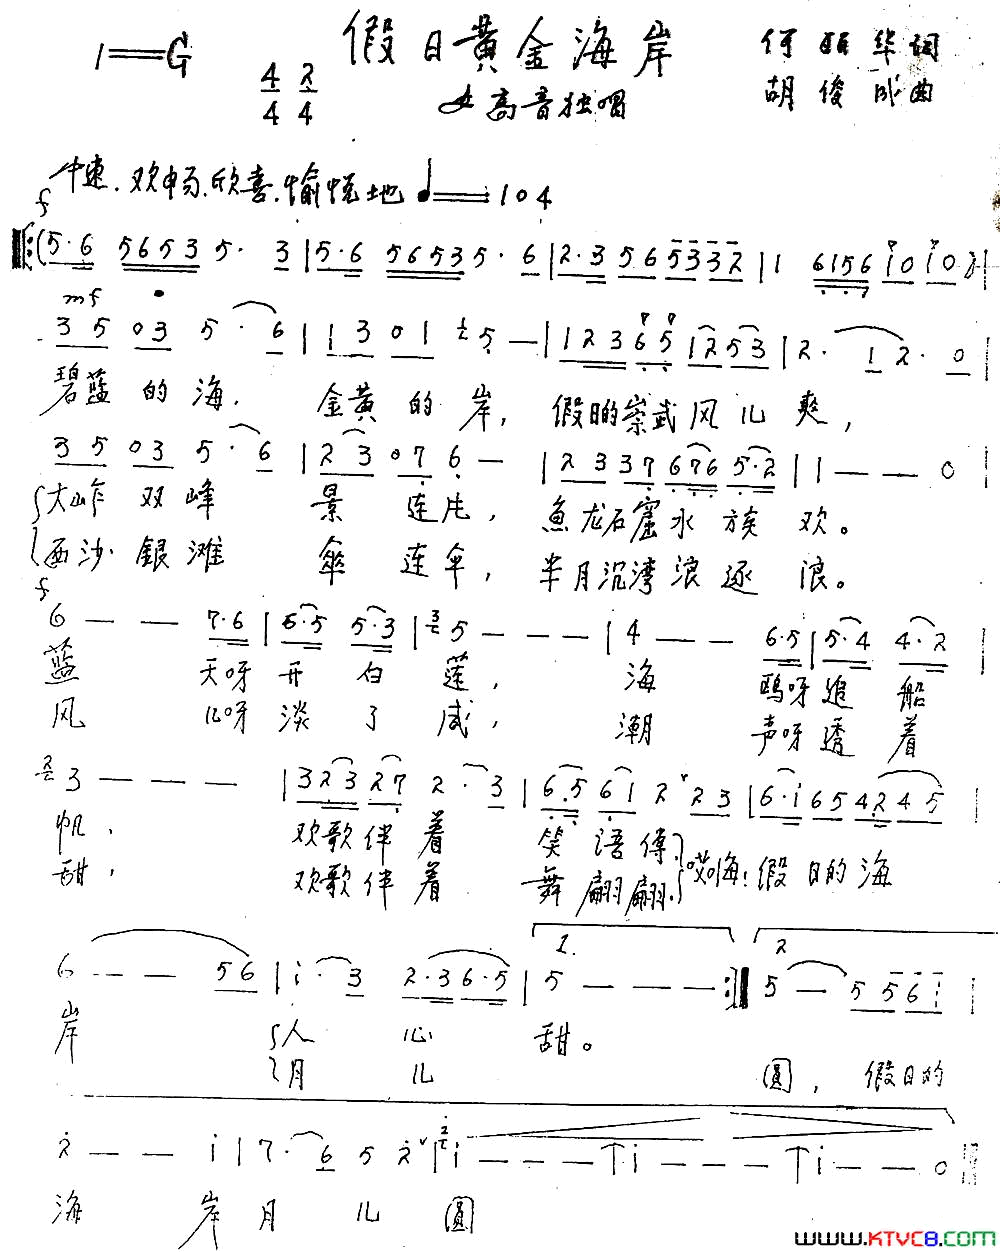 1=G 4/4 2/4 假日黄金海岸 何丽华词
女高音独唱 胡俊成曲
中速.欢畅.欣喜.愉悦地 ♩=104
f
(5·6 5653 5· 3 | 5·6 5653 5· 6 | 2·3 56 5332 | 1 6156 i0 i0)
mf
3 5 03 5· 6 | 13 01 5 — | 123 65 12 53 | 2· 1 2· 0 |
碧蓝的海. 金黄的岸, 假日的崇武风儿爽,
3 5 03 5· 6 | 23 07 6 — | 23 37 676 5·2 | 1 — — 0 |
大岞双峰 景连片, 鱼龙石窟水族欢。
西沙銀滩 傘连伞, 半月沉湾浪逐浪。
f
6 — — 7·6 | 6·5 5·3 | 5 — — — | 4 — — 6·5 | 5·4 4·2 |
蓝 天呀开白莲, 海 鷗呀追船
风 儿呀淡了咸, 潮 声呀透着
3 — — — | 323 27 2· 3 | 6·5 61 2 23 | 6·i 65 42 45 |
帆, 欢歌伴着 笑语傳. 哎嗨! 假日的海
甜, 欢歌伴着 舞翩翩.
1. 2
6 — — 56 | i· 3 2·3 6·5 | 5 — — — :| 5 — 5 5 6 i |
岸 人心 甜。
月儿 圓, 假日的
2 — — i | 7· 6 5 2 | i — — — | i — — — | i — — 0
海 岸月儿圓
www.KTVC8.com